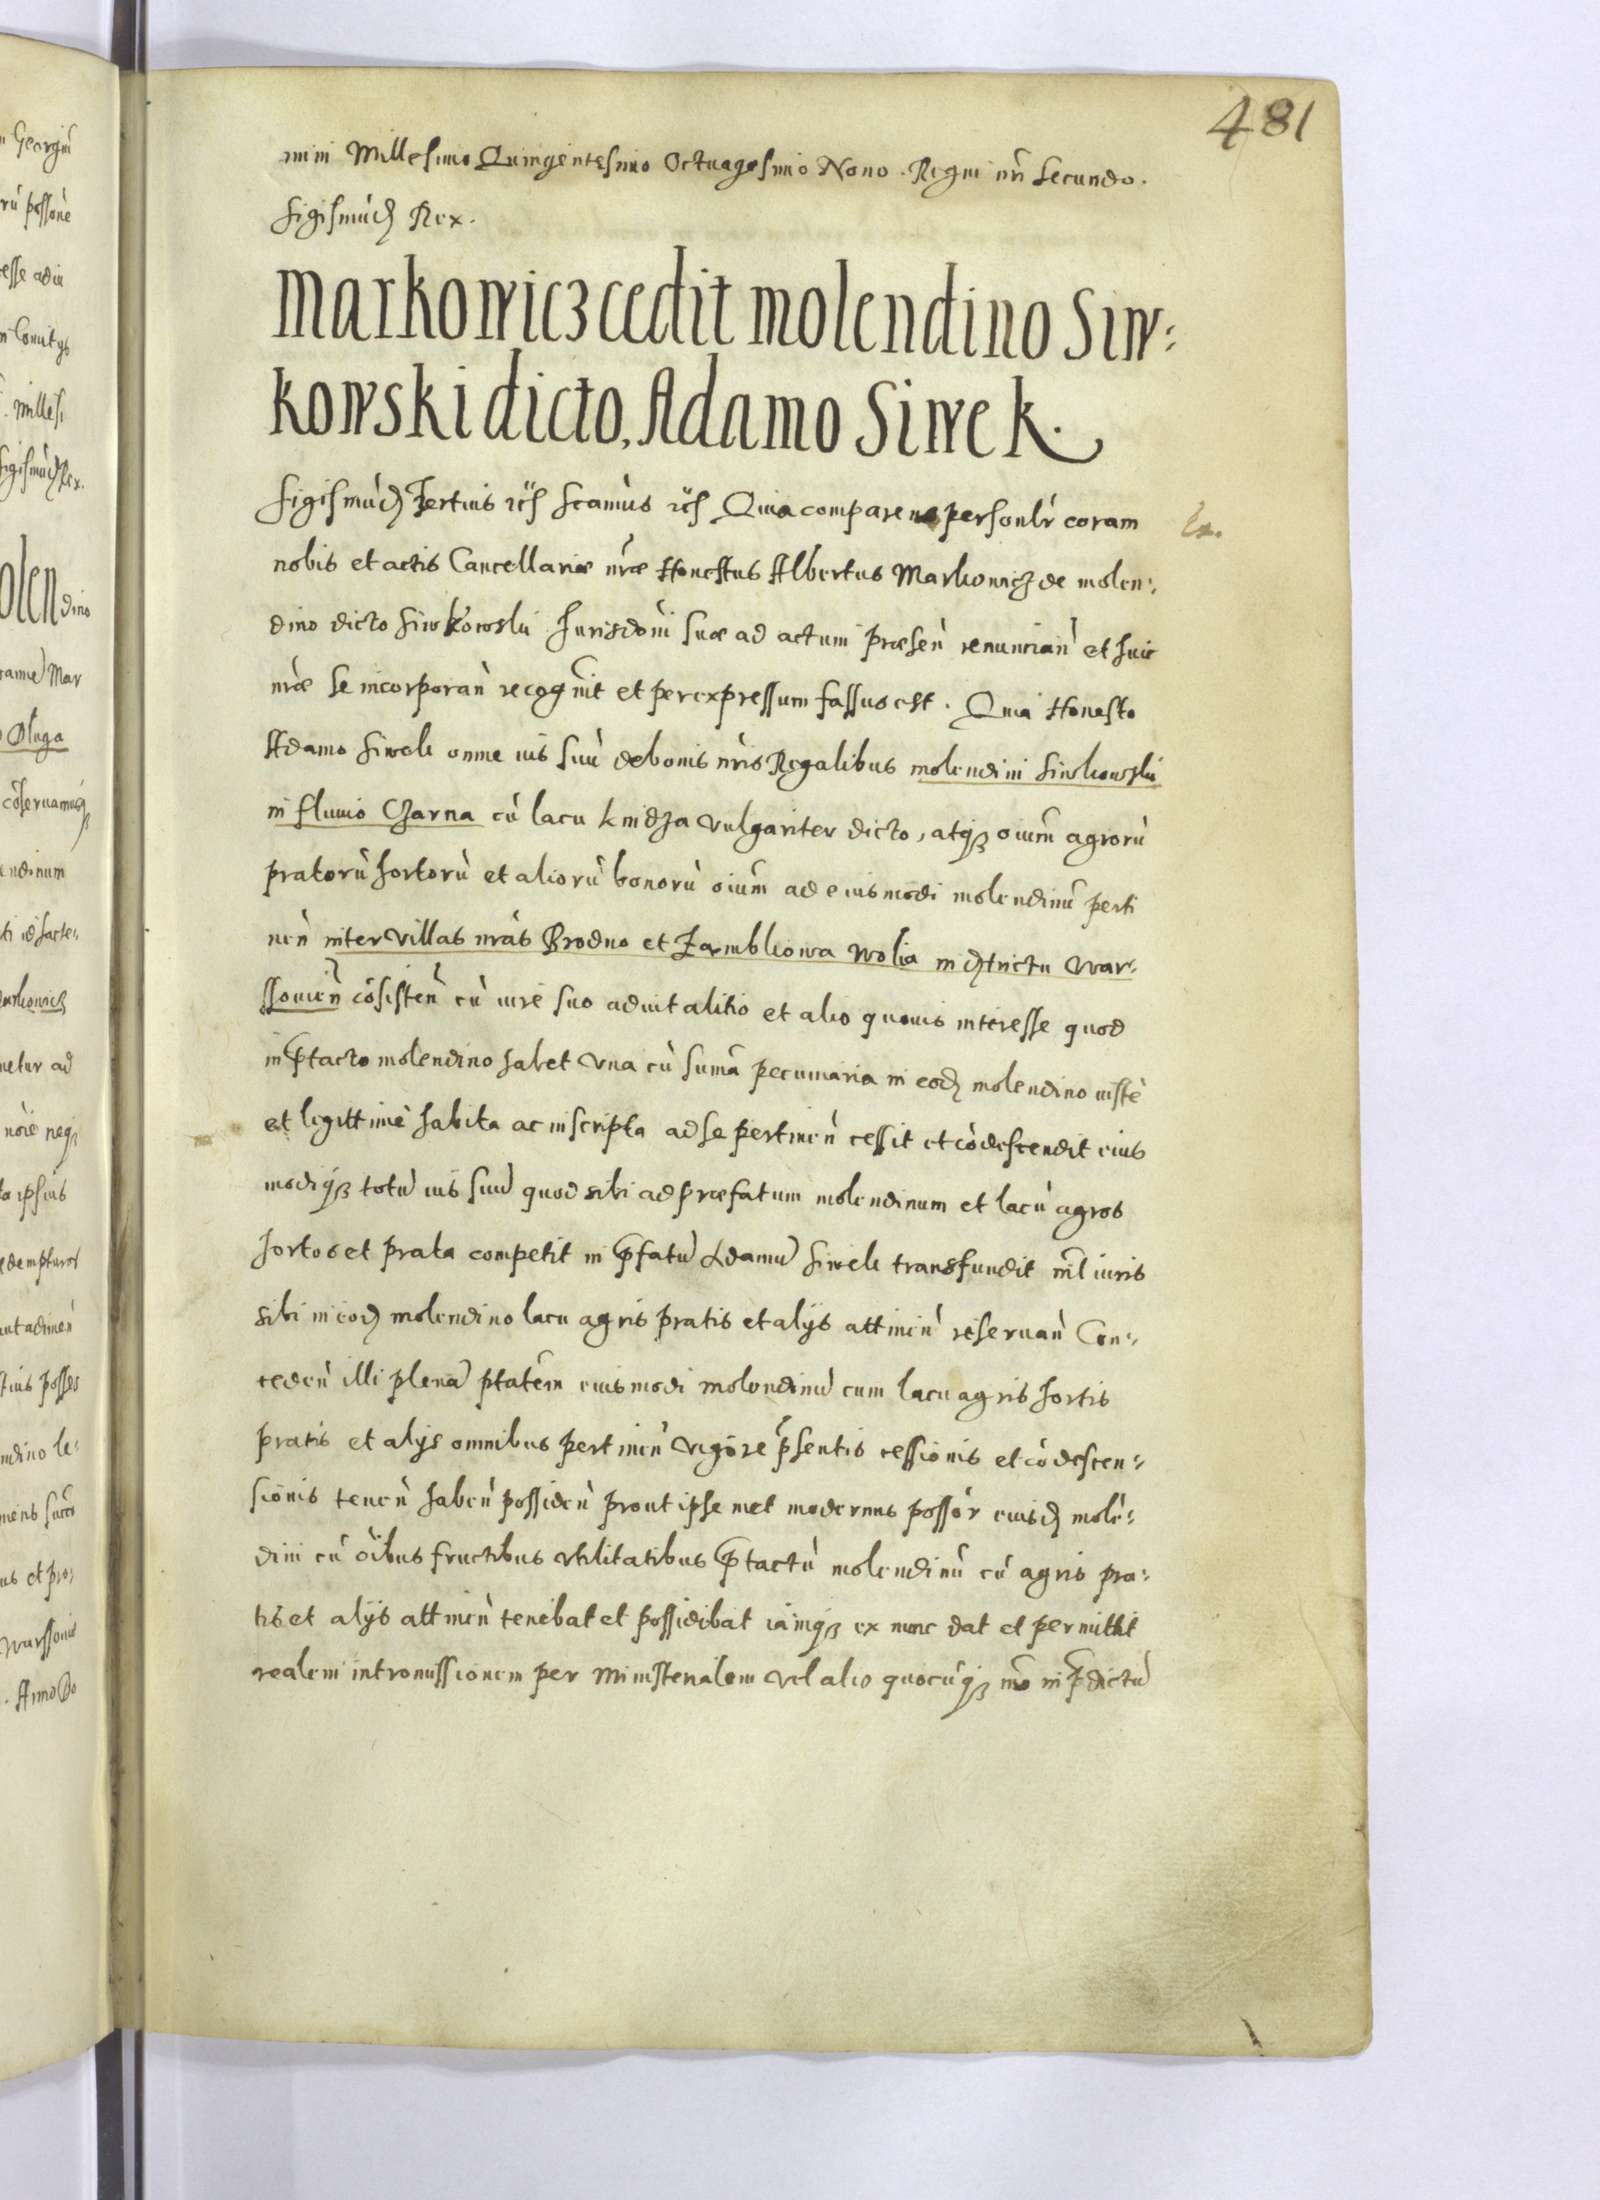 481
mini Millesimo Quingentesimo Octuagesimo Nono. Regni nri Secundo.
Sigismūdꝰ Rex.
Markowicz cedit molendino Siw:
kowski dicto, Adamo Siwek.
Sigismūdꝰ Tertius etc̃ Scimus etc̃ Quia comparens personlr coram
nobis et actis Cancellariæ nræ Honestus Albertus Markowicz de molen:
dino dicto Siwkowski Jurisdoni suæ ad actum præsen̄ renuncian̄ et huic
nræ se incorporan̄ recognit et per expressum fassus est. Quia Honesto
Adamo Siwek omne ius suū de bonis nris Regalibus molendini Siwkowski
in fluvio Czarna cū lacu Knidza vulgariter dicto, atqꝫ oium agrorū
pratorū hortorū et aliorū bonorū oium ad eiusmodi molendinū perti
nen̄ inter villas nras Brodno et Zambkowa Wolia in dꝰtrictu War:
ssouien̄ cōsisten̄ cū iure suo aduitalitio et alio quouis interesse quod
in p̄tacto molendino habet vna cū suma pecuniaria in eodꝫ molendino iustè
et legittimè habita ac inscripta ad se pertinen̄ cessit et cōdescendit eius
modiqꝫ totū ius suū quod sibi ad præfatum molendinum et lacū agros
hortos et prata competit in p̄fatū Adamū Siwek transfundit nil iuris
sibi in eodꝫ molendino lacu agris pratis et alijs attinen̄ reseruan̄ Con:
ceden̄ illi plenā p̄tatem eiusmodi molendinū cum lacu agris hortis
pratis et alijs omnibus pertinen̄ vigore p̄sentis cessionis et cōdescen:
sionis tenen̄ haben̄ possiden̄ prout ipse met modernus possor eiusdꝫ molē:
dini cū oibus fructibus vtilitatibus p̄tactū molendinū cū agris pra:
tis et alijs attinen̄ tenebat et possidebat iāmqꝫ ex nunc dat et permittit
realem intromissionem per Ministerialem vel alio quocūqꝫ mo in p̄dictū